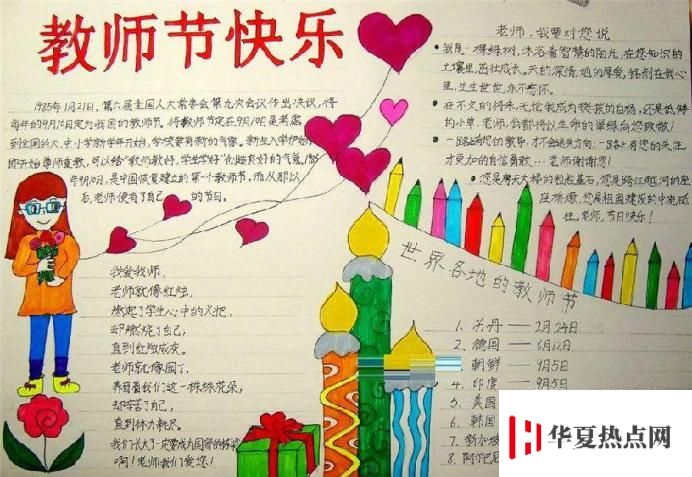 教师节快乐
1985年1月21日,第六届全国人大常委会第九次会议作出决议,将
每年的9月10日定为我国的教师节。将教师节定在9月10日是考虑
到全国的大、中小学新学年开始,学校要有新的气象。新生入学伊始
即开始尊师重教,可以给"教师教好,学生学好"创造良好的气氛。
年9月10日,是中国恢复建立的第一个教师节,而从那以
后,老师便有了自己的节日。
老师,我要对您说
我是一棵绿树,沐浴着智慧的阳光,在您知识的
土壤里,茁壮成长。天的深情,地的厚爱,铭刻在我心
里,生生世世,永不忘怀。
在不久的将来,无论我成为挺拔的白杨,还是低矮
的小草,老师,我都将以生命的翠绿向您致敬!
一路上有您的教导,才不会迷失方向;一路上有您的关注,
才更加的自信勇敢……老师谢谢您!
您是摩天大楼的粒粒基石,您是跨江越河的座
座桥墩,您是祖国建设的中流砥
柱。老师,节日快乐!
世界各地的教师节
1、苏丹——2月24日
2、德国——6月12日
朝鲜——9月5日
4、印度——9月5日
5、美国
6、韩国
7、新加坡
8、阿
我爱我师,
老师就像红烛,
燃起了学生心中的火把,
却燃烧了自己,
直到红烛成灰。
老师就像园丁,
养育着我们这一株株花朵,
却辛苦了自己,
直到体力耗尽。
我们长大了一定要成为国家的栋梁
啊!老师我们爱您!
华夏热点网